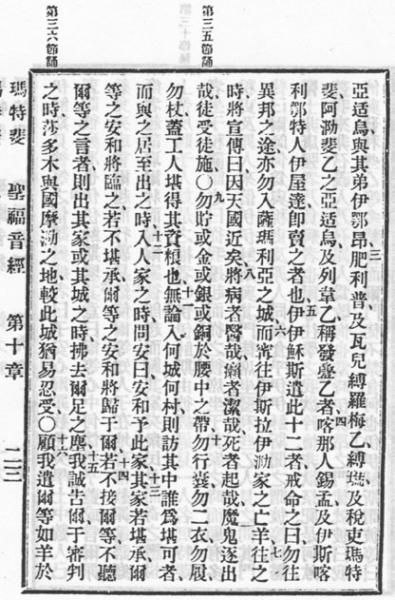 第三五節誦
亞适烏、與其弟伊鄂昂、肥利普、及瓦兒縛羅梅乙、縛、及稅吏瑪特
斐、阿泐斐乙之亞适烏、及列韋乙稱發疊乙者、四喀那人錫孟、及伊斯喀
利鄂特人伊屋達、卽賣之者也、五伊伊穌斯遣此十二者、戒命之曰、勿往
異邦之途、亦勿入薩瑪利亞之城、六而寧往伊斯拉伊泐家之亡羊、七往之
時、將宣傳曰、因天國近矣、八將病者醫哉、癩者潔哉、死者起哉、魔鬼逐出
哉、徒受徒施、〇九勿貯或金或銀或銅於腰中之帶、十勿行囊、勿二衣、勿履
勿杖、蓋工人堪得其資糗也、十一無論入何城何村、則訪其中誰爲堪可者、
而與之居、至出之時、十二入人家之時、問安曰、安和予此家、十三其家若堪承爾
等之安和、將臨之、若不堪承爾等之安和、將歸于爾、十四若不接爾等、不聽
爾等之言者、則出其家、或其城之時、拂去爾足之塵、十五我誠告爾、于審判
之時、莎多木與國摩泐之地、較此城猶易忍受、〇十六顧我遣爾等如羊於
第三六節誦
瑪特斐 聖福音經 第十章 二三